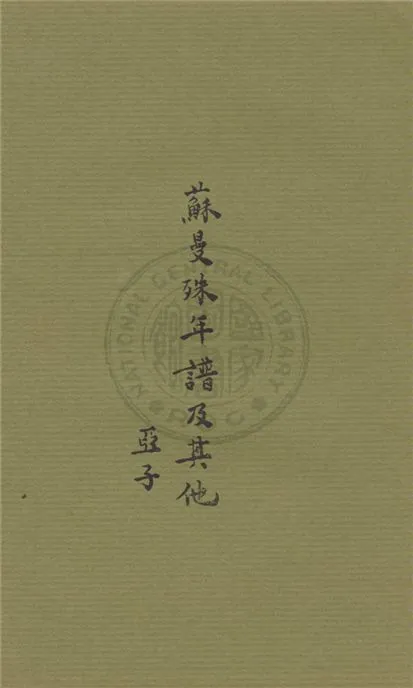 蘇曼殊年譜及其他
亞子
NATIONAL CENTRAL LIBRARY